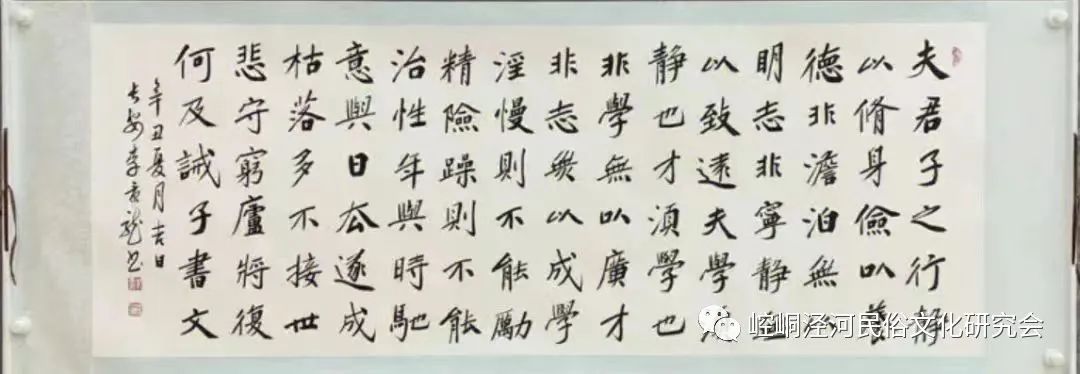 夫君子之行靜
以脩身儉以養
德非澹泊無以
明志非寧靜無
以致遠夫學須
靜也才須學也
非學無以廣才
非志無以成學
淫慢則不能勵
精險躁則不能
治性年與時馳
意與日去遂成
枯落多不接世
悲守窮廬將復
何及誡子書文
辛丑夏月吉日
長安李龍書
崆峒泾河民俗文化研究会